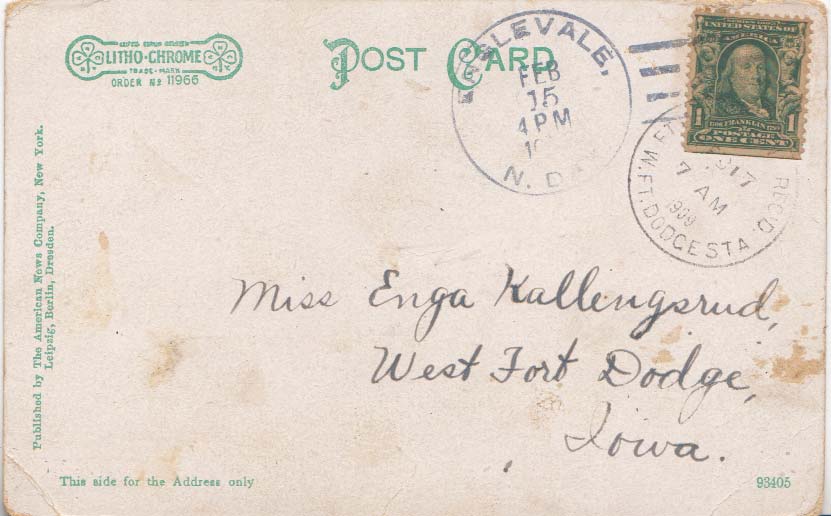 LITHO-CHROME
TRADE-MARK
ORDER Nº 11966
POST CARD
FEB
15
4 PM
N. DAK
UNITED STATES OF AMERICA
1 1
POSTAGE
ONE CENT
REC'D.
17
7 AM
1909
W. FT. DODGE STA
Miss Enga Kallengsrud,
West Fort Dodge,
Iowa.
Published by The American News Company, New York.
Leipzig, Berlin, Dresden.
This side for the Address only
93405